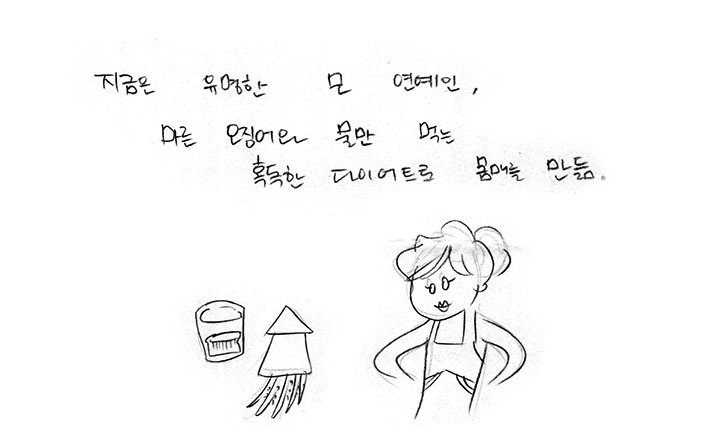 지금은 유명한 모 연예인,
마른 오징어와 물만 먹는
혹독한 다이어트로 몸매를 만듦.